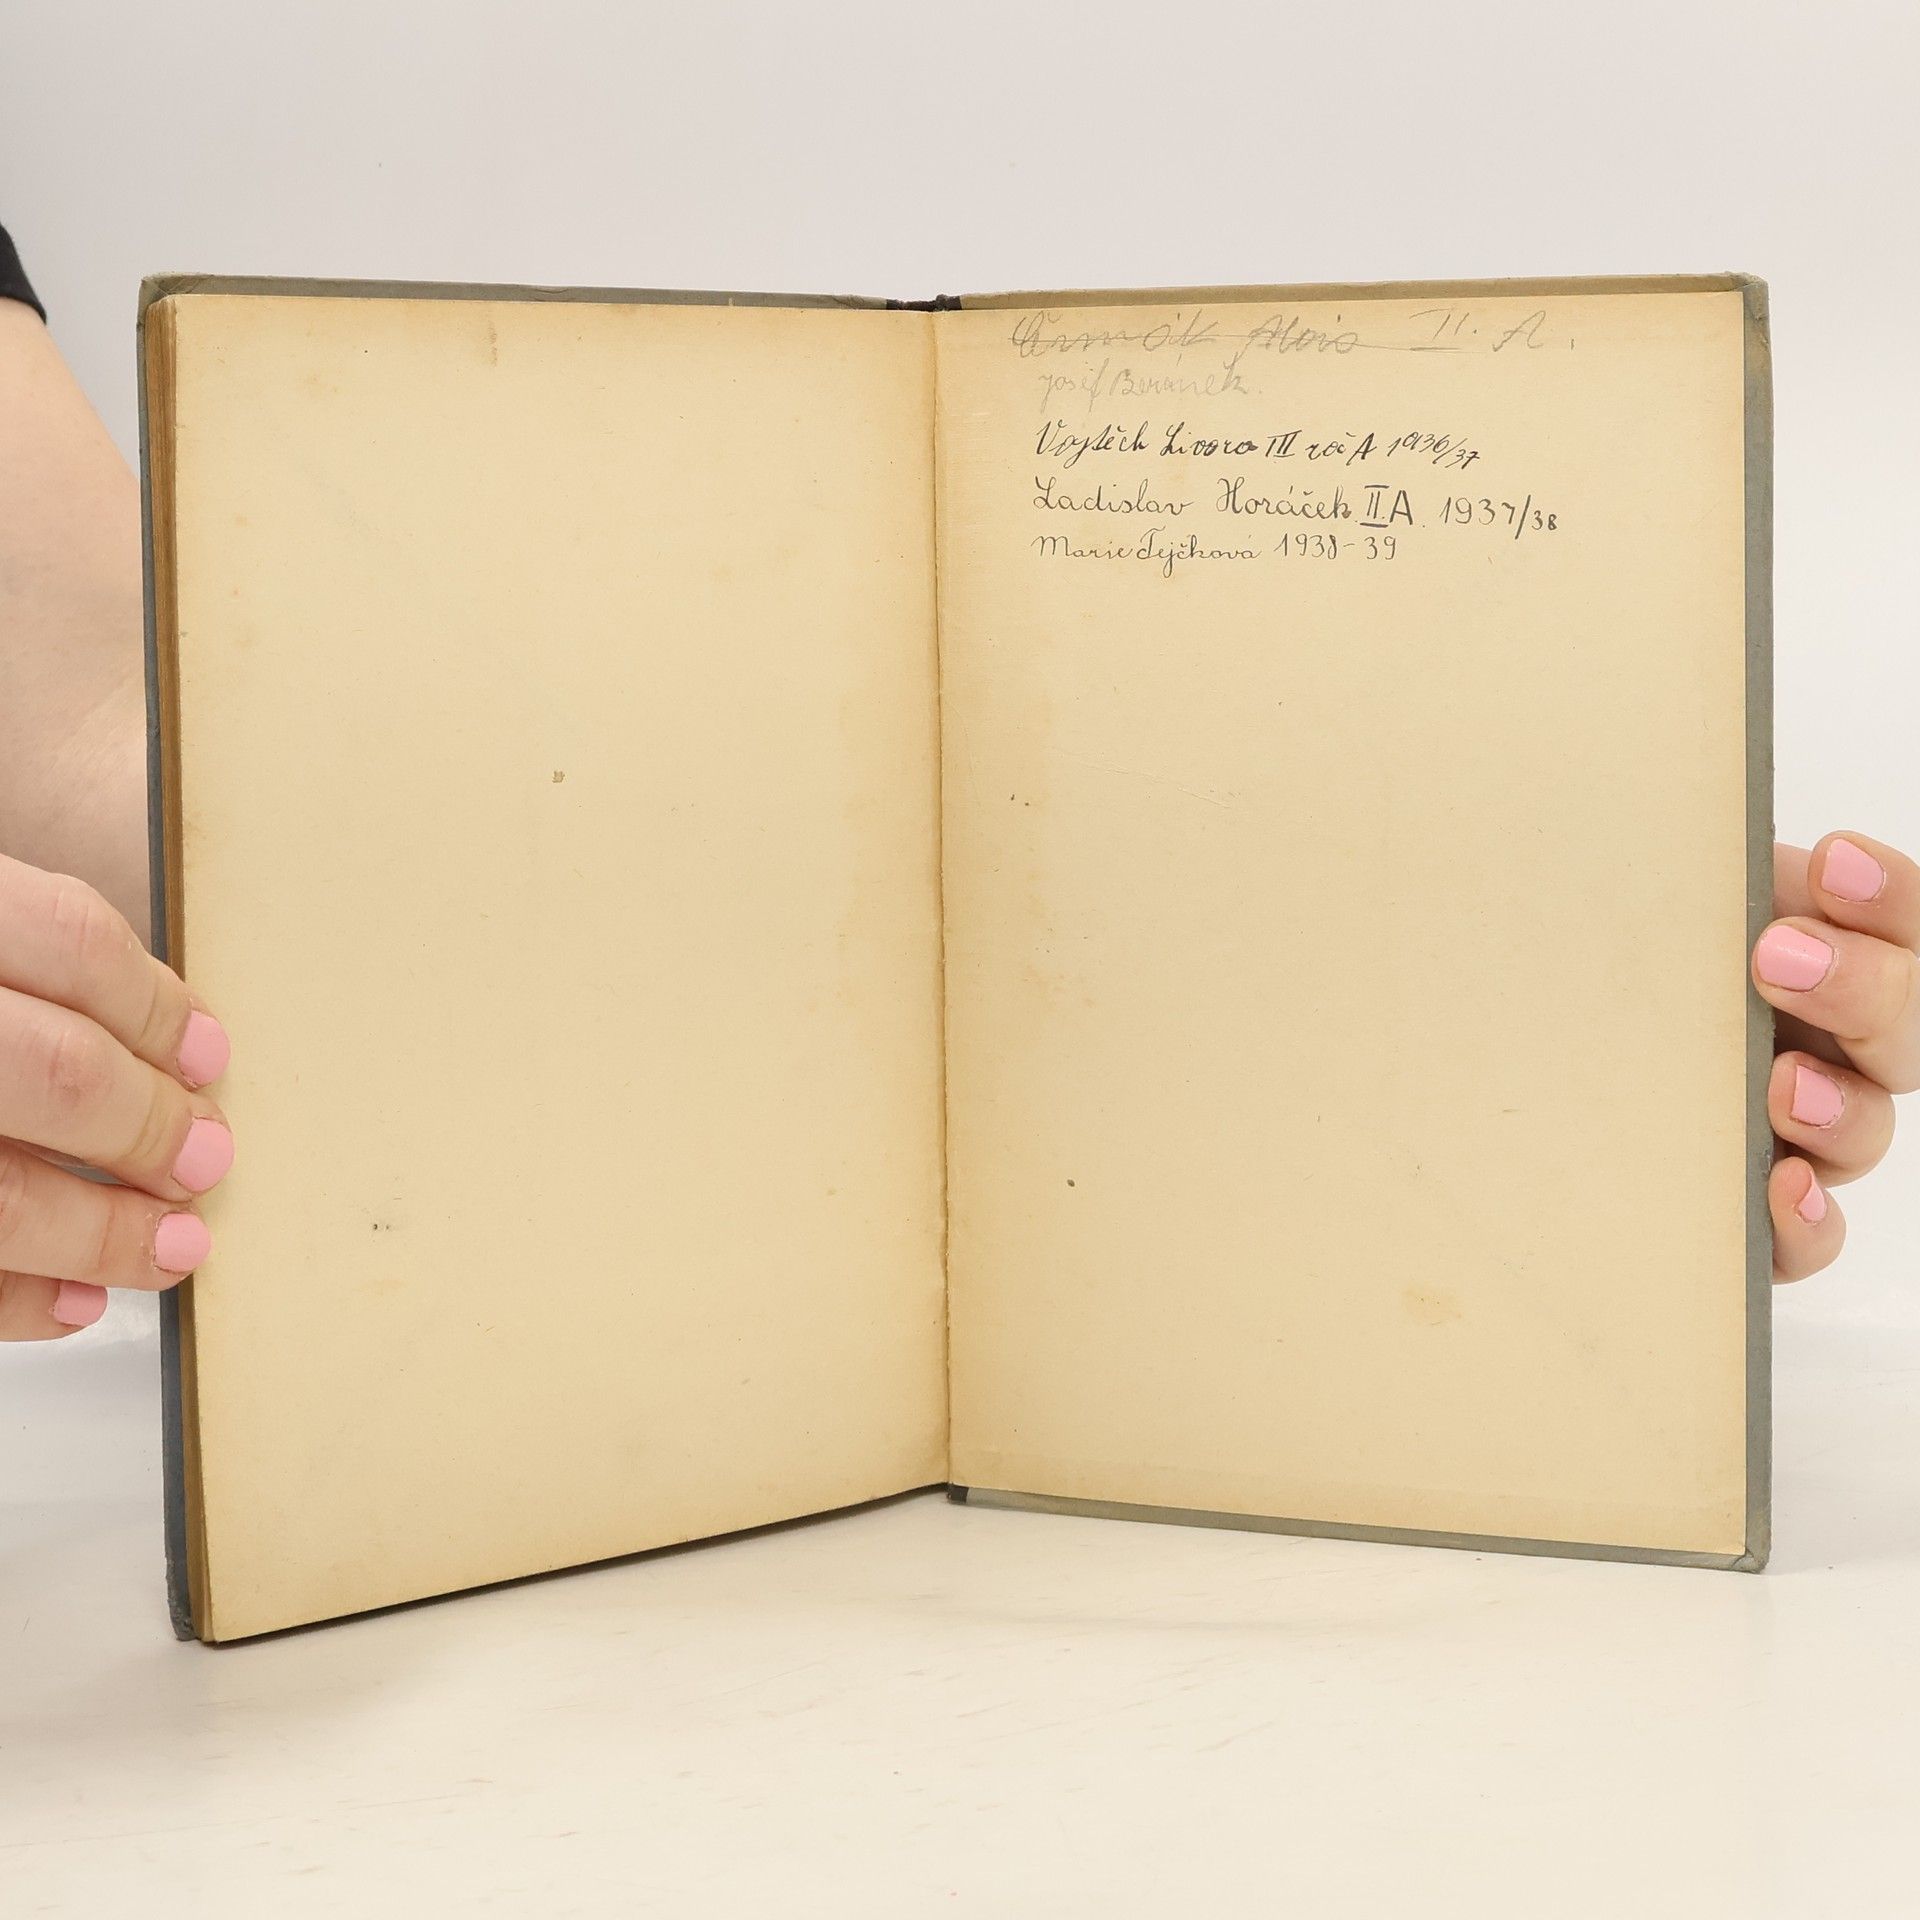 Čermák Alois II. A.
Josef Beránek.
Vojtěch Livora III roč A 1936/37
Ladislav Horáček II.A. 1937/38
Marie Tejčková 1938-39